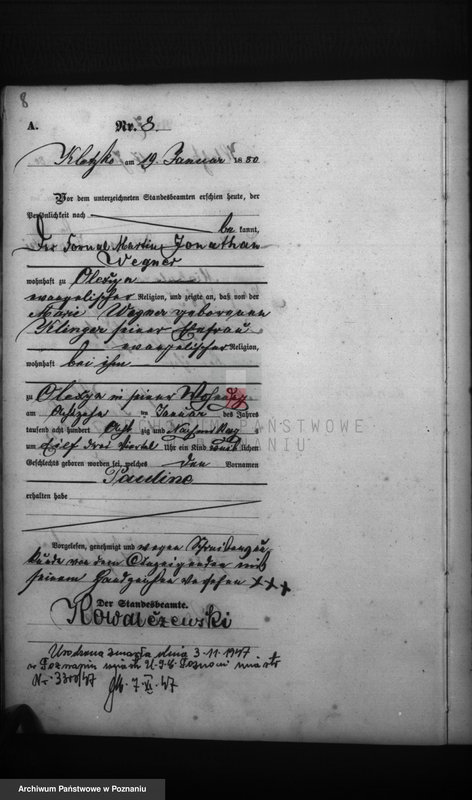 8
A.
Nr. 8.
Klotzko am 19. Januar 1880
Vor dem unterzeichneten Standesbeamten erschien heute, der
Persönlichkeit nach
be kannt,
Der Fornal Martin Jonathan
Wegner
wohnhaft zu Olexyn
evangelischer Religion, und zeigte an, daß von der
Marie Wegner geborenen
Klinger seiner Ehefrau
evangelischer Religion,
wohnhaft bei ihm
zu Olexyn in seiner Wohnung
am Achtzehn ten Januar des Jahres
tausend acht hundert Acht zig und Nachmittag s
um Eilf drei Viertel Uhr ein Kind weib lichen
Geschlechts geboren worden sei, welches den Vornamen
Pauline
erhalten habe
Vorgelesen, genehmigt und wegen Schreibensun
kunde von dem Anzeigenden mit
seinem Handzeichen versehen + + +
Der Standesbeamte.
Kowalczewski
Urodzona zmarła dnia 3.11.1947
w Poznaniu
Nr. 3300/47 7.XI.47
ARCHIWUM PAŃSTWOWE
W POZNANIU
Archiwum Państwowe w Poznaniu